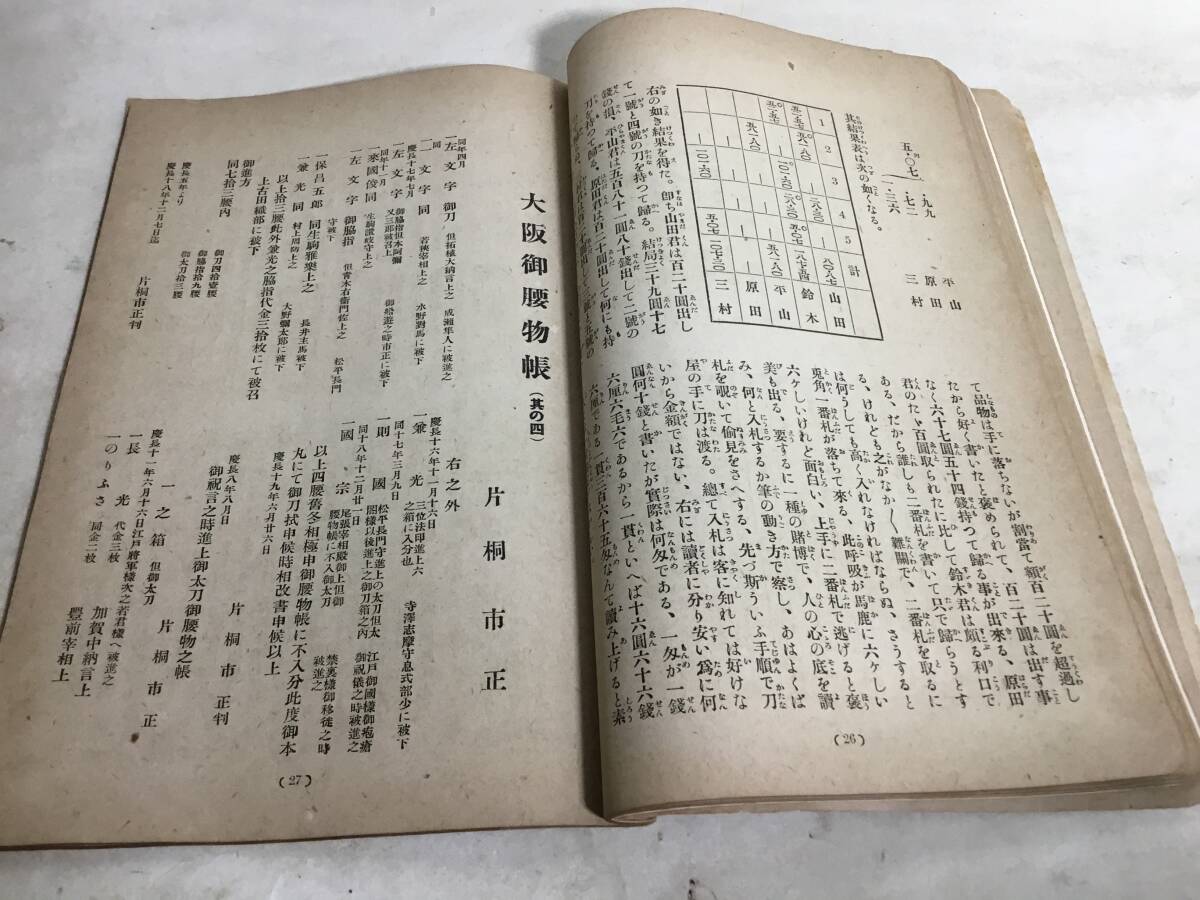 其結果表は次の如くなる。
五・〇七
・九九
・七二
・三六
平山
原田
三村
1
2
3
4
5
計
山田
鈴木
平山
原田
三村
右の如き結果を得た。卽ち山田君は百二十圓出し
て一號と四號の刀を持つて歸る。結局三十九圓十七
錢の損、平山君は五百八十一圓八十錢出して二號の
刀を持つて歸る。原田君は百二十圓出して何にも持
て品物は手に落ちないが割當て額百二十圓を超過し
たから好く書いたと褒められて、百二十圓は出す事
なく六十七圓五十四錢持つて歸る事が出來る、原田
君のたゞ百圓取られたに比して鈴木君は頗る利口で
ある、だから誰しも二番札を書いて只で歸らうとす
る、けれども之がなか〱難關で、二番札を取るに
は何うしても高く入れなければならぬ、さうすると
兎角一番札が落ちて來る、此呼吸が馬鹿に六ヶしい
六ヶしいけれど面白い、上手に二番札で逃げると褒
美も出る、要するに一種の賭博で、人の心の底を讀
み、何と入札するか筆の動き方で察し、あはよくば
札を覗いて偷見をさへする、先づ斯ういふ手順で刀
屋の手に刀は渡る。總て入札は客に知れては好けな
いから金額ではない、右には讀者に分り安い爲に何
圓何十錢と書いたが實際は何匁である、一匁が一錢
六厘六毛六であるから一貫といへば十六圓六十六錢
六厘である一貫三百六十五匁なんて讀み上げると素
(26)
大阪御腰物帳(其の四)
片桐市正
同年四月
一左文字 御刀 但拓極大納言上之 成瀨隼人に被進之
一二文字 同 若狹宰相上之 水野對馬に被下
慶長十七年七月
一左文字 御脇指但本阿彌又三郎被召上 御船遊之時市正に被下
同年十一月
一來國俊 同 生駒讚岐守上之 松平長門守被下
一左文字 御脇指 但靑木右衞門佐上之
一保昌五郎 同 生駒雅樂上之 大野彌太郎に被下
一兼光 同 村上周防上之 長井主馬被下
以上拾三腰此外兼光之脇指代金三拾枚にて被召
上古田織部に被下
御進方
同七拾三腰內
御刀四拾壹腰
御脇指拾九腰
御太刀拾三腰
慶長五年より
慶長十八年十二月七日迄
片桐市正判
右之外
慶長十六年十一月十六日
一兼光 三位法印進上六之箱に入分也 寺澤志摩守息式部少に被下
同十七年三月九日
一則國 松平長門守進上の太刀但太閤樣以後進上之御刀箱之內 江戶御國樣御疱瘡御祝儀之時被進之
同十八年十二月廿一日
一國宗 尾張宰相殿御上但御腰物帳に不入御太刀 禁裏樣御移徙之時被進之
以上四腰舊冬相極申御腰物帳に不入分此度御本
丸にて御刀拭申候時相改書申候以上
慶長十九年六月廿六日
片桐市正判
慶長八年八月日
御祝言之時進上御太刀御腰物之帳
一之箱 但御太刀 片桐市正
慶長十一年六月十六日江戶將軍樣次之若君樣へ被進之
一長光 代金三枚 加賀中納言上
一のりふさ 同金二枚 豐前宰相上
(27)